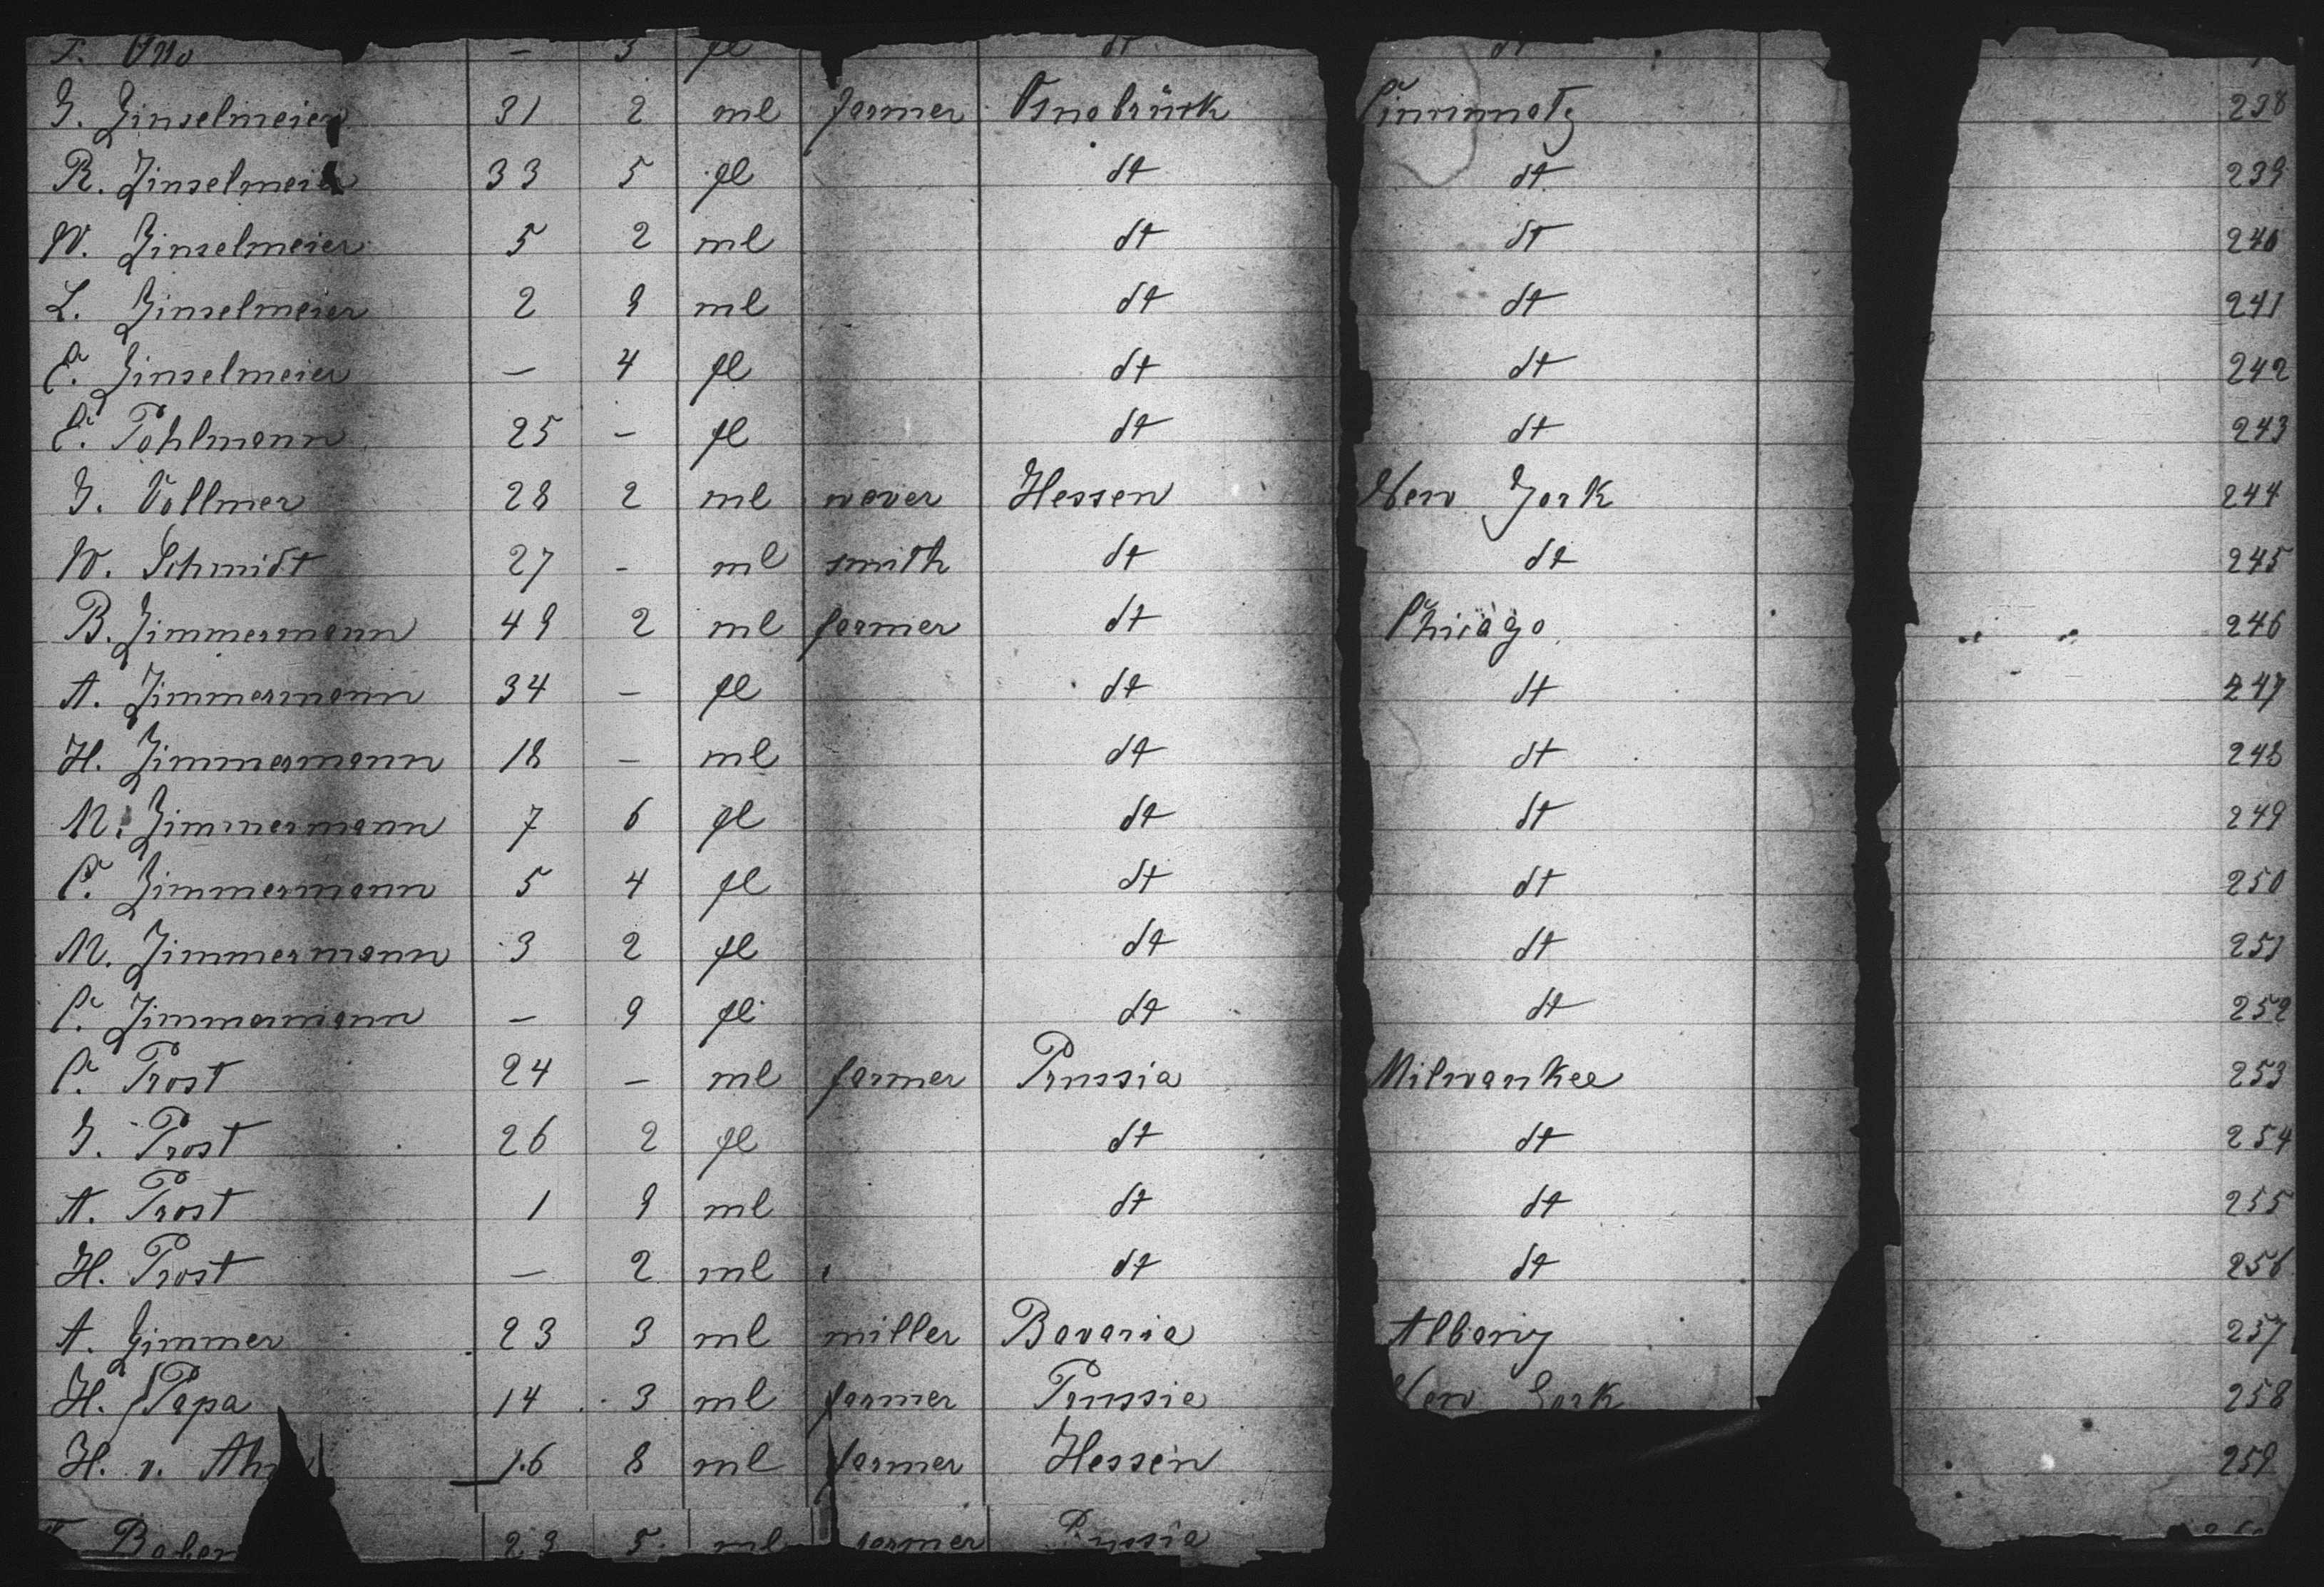 F. Otto — 3 fl dt dt
J. Zinselmeier 31 2 ml farmer Osnabrück Cincinnaty 238
R. Zinselmeier 33 5 fl dt dt 239
W. Zinselmeier 5 2 ml dt dt 240
L. Zinselmeier 2 9 ml dt dt 241
C. Zinselmeier — 4 fl dt dt 242
C. Pohlmann 25 — fl dt dt 243
J. Vollmer 28 2 ml wever Hessen New York 244
W. Schmidt 27 - ml smith dt dt 245
B. Zimmermann 49 2 ml farmer dt Chicago 246
A. Zimmermann 34 — fl dt dt 247
H. Zimmermann 18 — ml dt dt 248
M. Zimmermann 7 6 fl dt dt 249
C. Zimmermann 5 4 fl dt dt 250
M. Zimmermann 3 2 fl dt dt 251
C. Zimmermann — 9 fl dt dt 252
C. Prost 24 — ml farmer Prussia Milwaukee 253
J. Prost 26 2 fl dt dt 254
A. Prost 1 9 ml dt dt 255
H. Prost — 2 ml dt dt 256
A. Zimmer 23 3 ml miller Bavaria Albany 257
H. Papa 14 3 ml farmer Prussia New York 258
H. v. Ahn 16 8 ml farmer Hessen 259
Baber 23 5 ml farmer Prussia